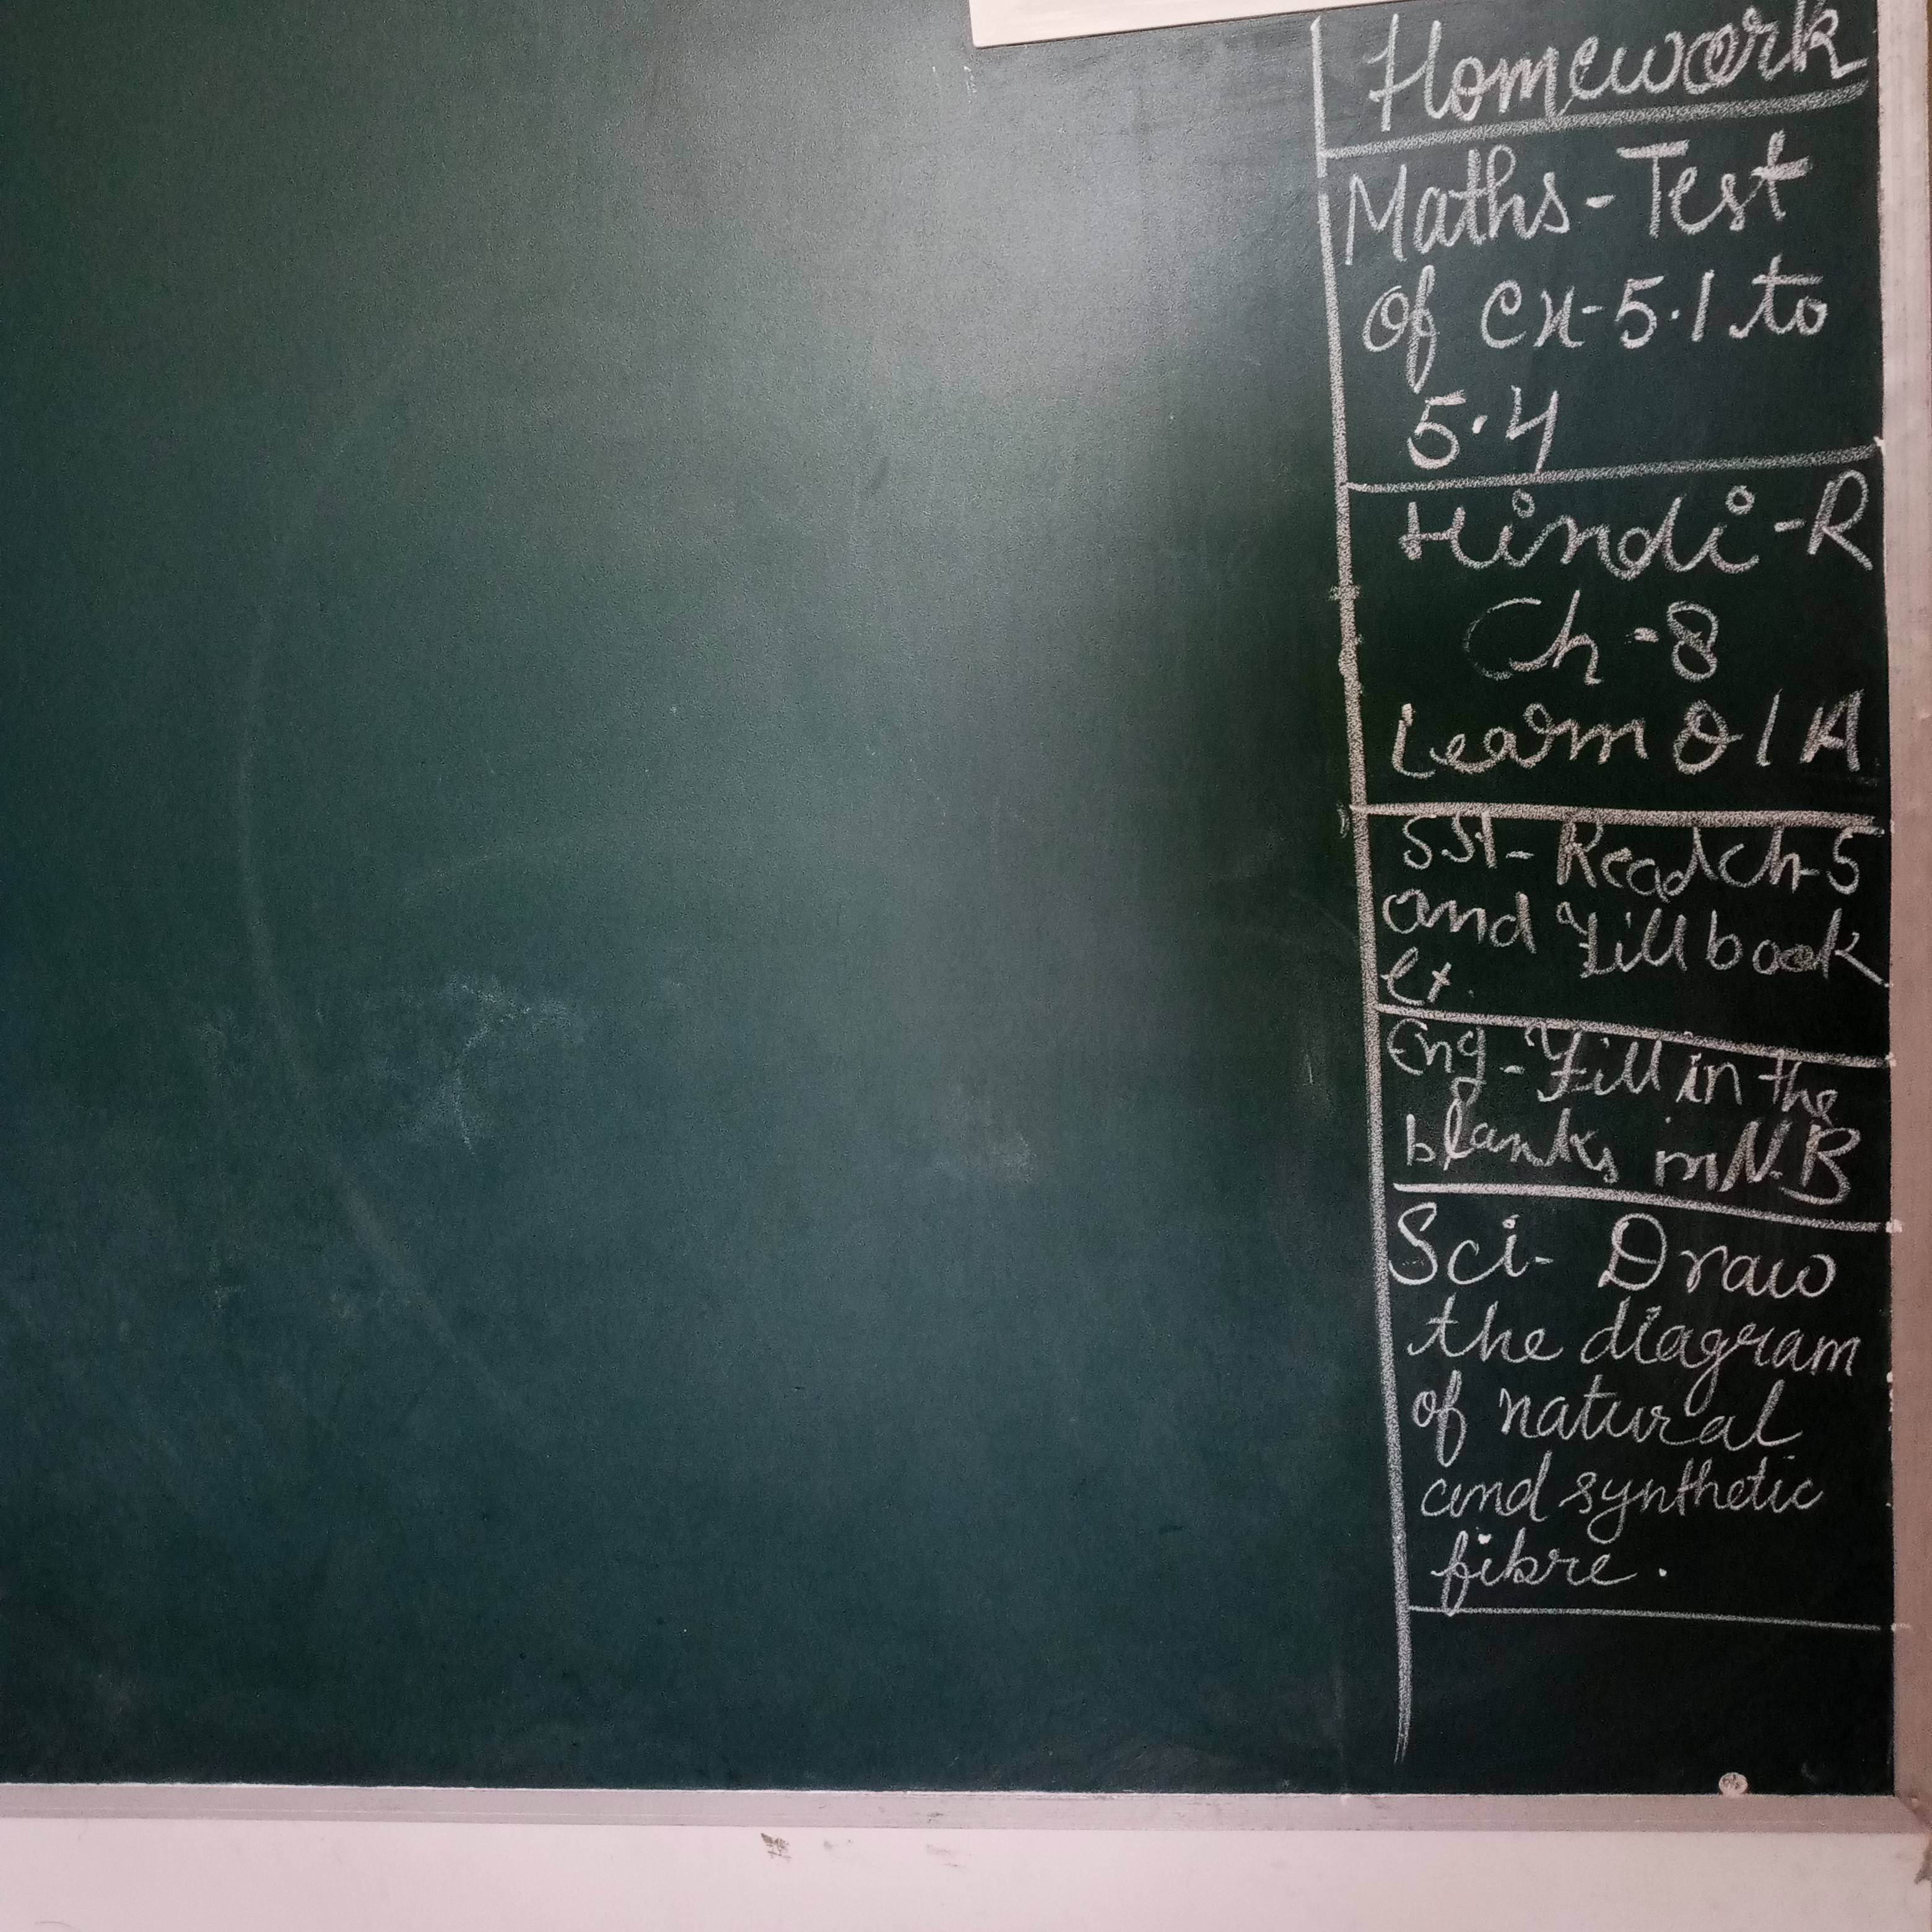 Homework
Maths-Test
of Ex-5.1 to
5.4
Hindi-R
Ch-8
Learn Q/A
S.St- Read ch-5
and fill book
Ex
Eng-Fill in the
blanks in N.B
Sci- Draw
the diagram
of natural
and synthetic
fibre.